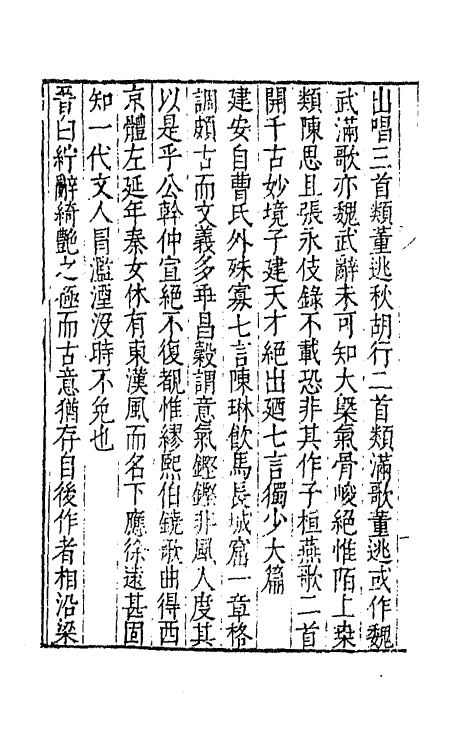 山唱三首類董逃秋胡行二首類滿歌董逃或作魏
武滿歌亦魏武辭未可知大槩氣骨峻絕惟陌上桒
類陳思且張永伎錄不載恐非其作子桓燕歌二首
開千古妙境子建天才絕出廼七言獨少大篇
建安自曹氏外殊寡七言陳琳飲馬長城窟一章格
調頗古而文義多乖昌穀謂意氣鏗鏗非風人度其
以是乎公幹仲宣絕不復覩惟繆熙伯鐃歌曲得西
京體左延年秦女休有東漢風而名下應徐遠甚固
知一代文人冒濫湮沒時不免也
晉白紵辭綺艷之極而古意猶存自後作者相沿梁